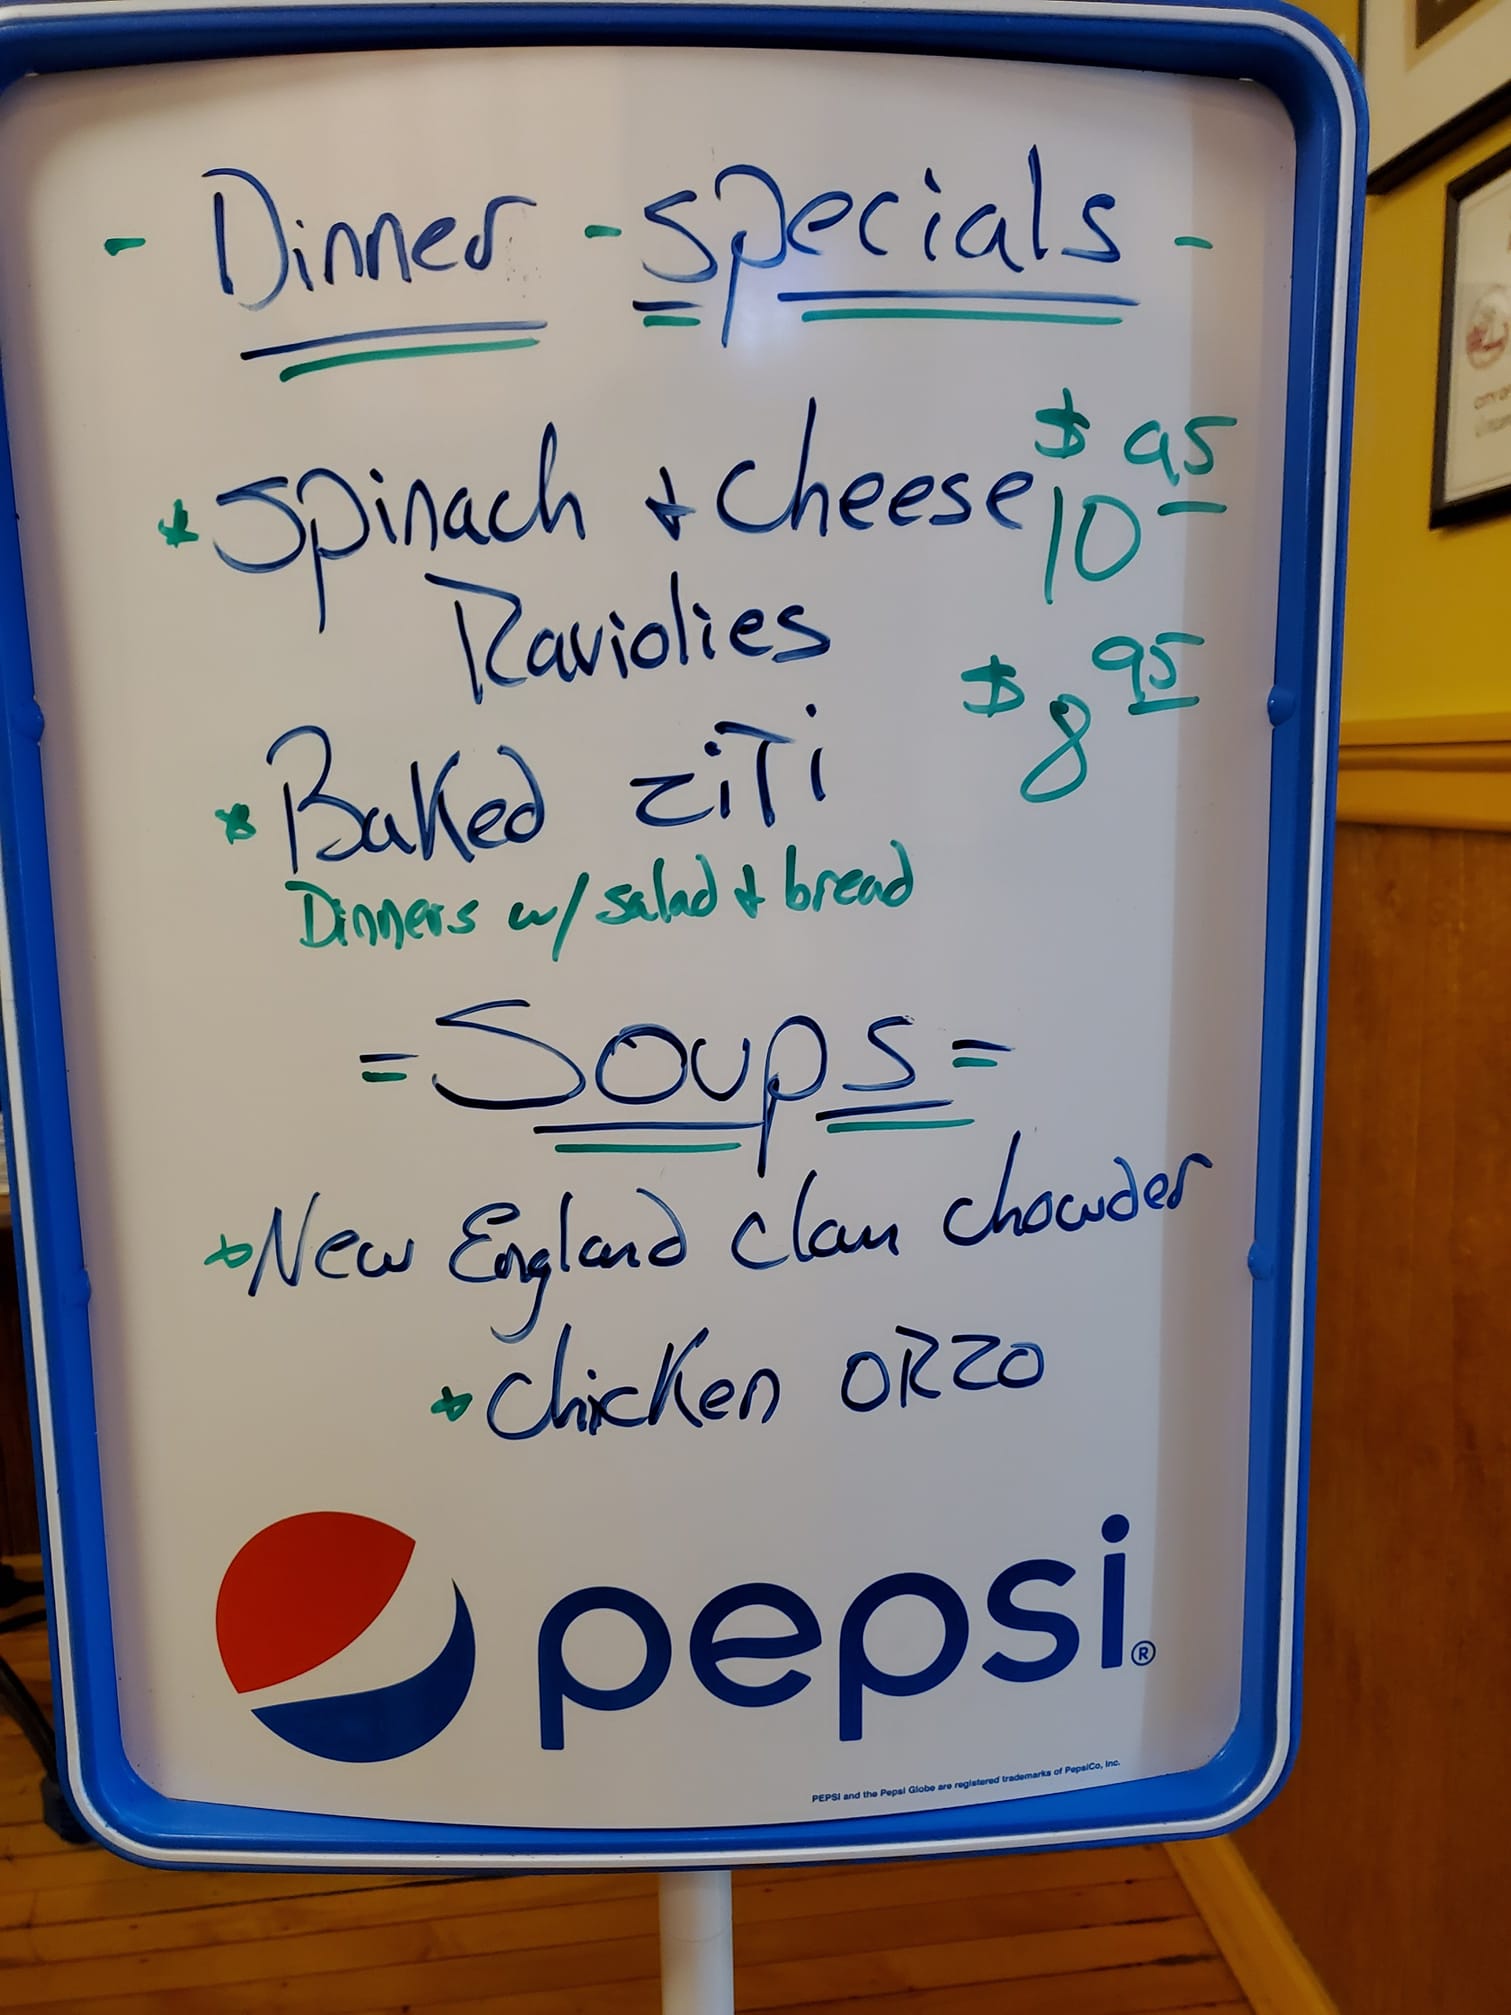 - Dinner - Specials -
* Spinach + Cheese $10 95
Raviolies
* Baked ziTi $8 95
Dinners w/ salad + bread
= Soups =
* New England Clam Chowder
* Chicken ORZO
pepsi®
PEPSI and the Pepsi Globe are registered trademarks of PepsiCo, Inc.
CITY OF